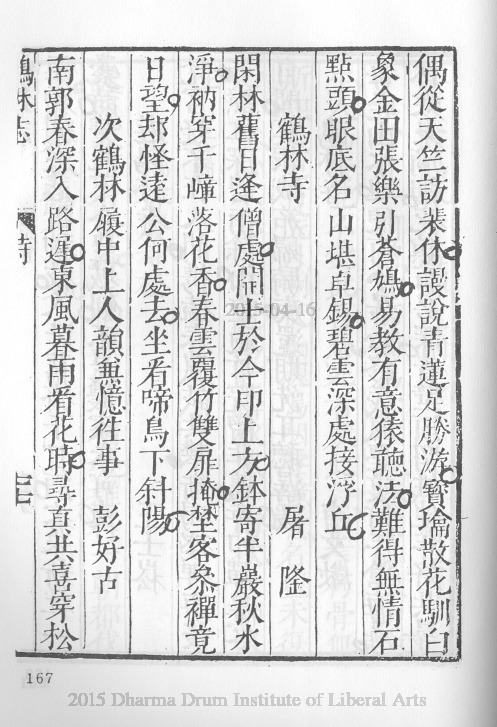 偶從天竺訪裴休謾說青蓮足勝游寳瑜散花馴白
象金田張樂引蒼鳩易教有意猿聽法難得無情石
點頭眼底名山堪卓錫碧雲深處接浮丘
鶴林寺 屠隆
閑林舊日逢僧處開士於今印上方鉢寄半巖秋水
淨衲穿千嶂落花香春雲覆竹雙扉掩埜客叅禪竟
日望却怪逺公何處去坐看啼鳥下斜陽
次鶴林履中上人韻兼憶徃事 彭好古
南郭春深入路遲東風暮雨看花時尋真共喜穿松
鶴林志 詩
167
2015-04-16
2015 Dharma Drum Institute of Liberal Arts